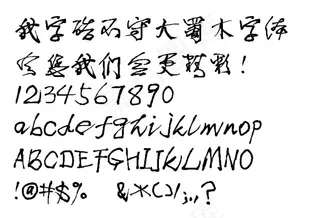 我字 守大蜀木字体
您我们会更精彩!
1234567890
abcdefghijklmnop
ABCDEFGHIJKLMNO
!@#$% &*()/;.,?